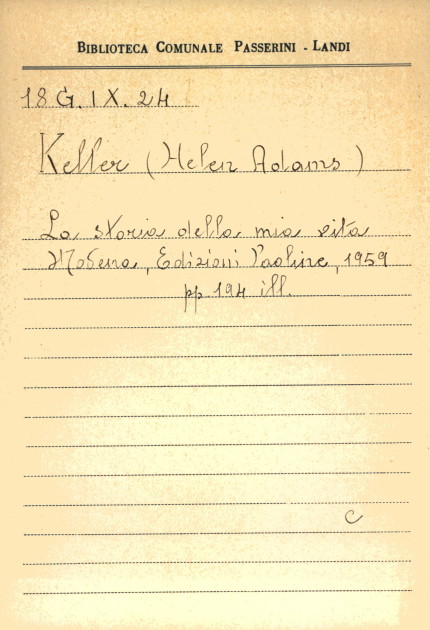 BIBLIOTECA COMUNALE PASSERINI - LANDI
18 G. IX. 24
Keller (Helen Adams)
La storia della mia vita
Modena, Edizioni Paoline, 1959
pp. 194 ill.
C